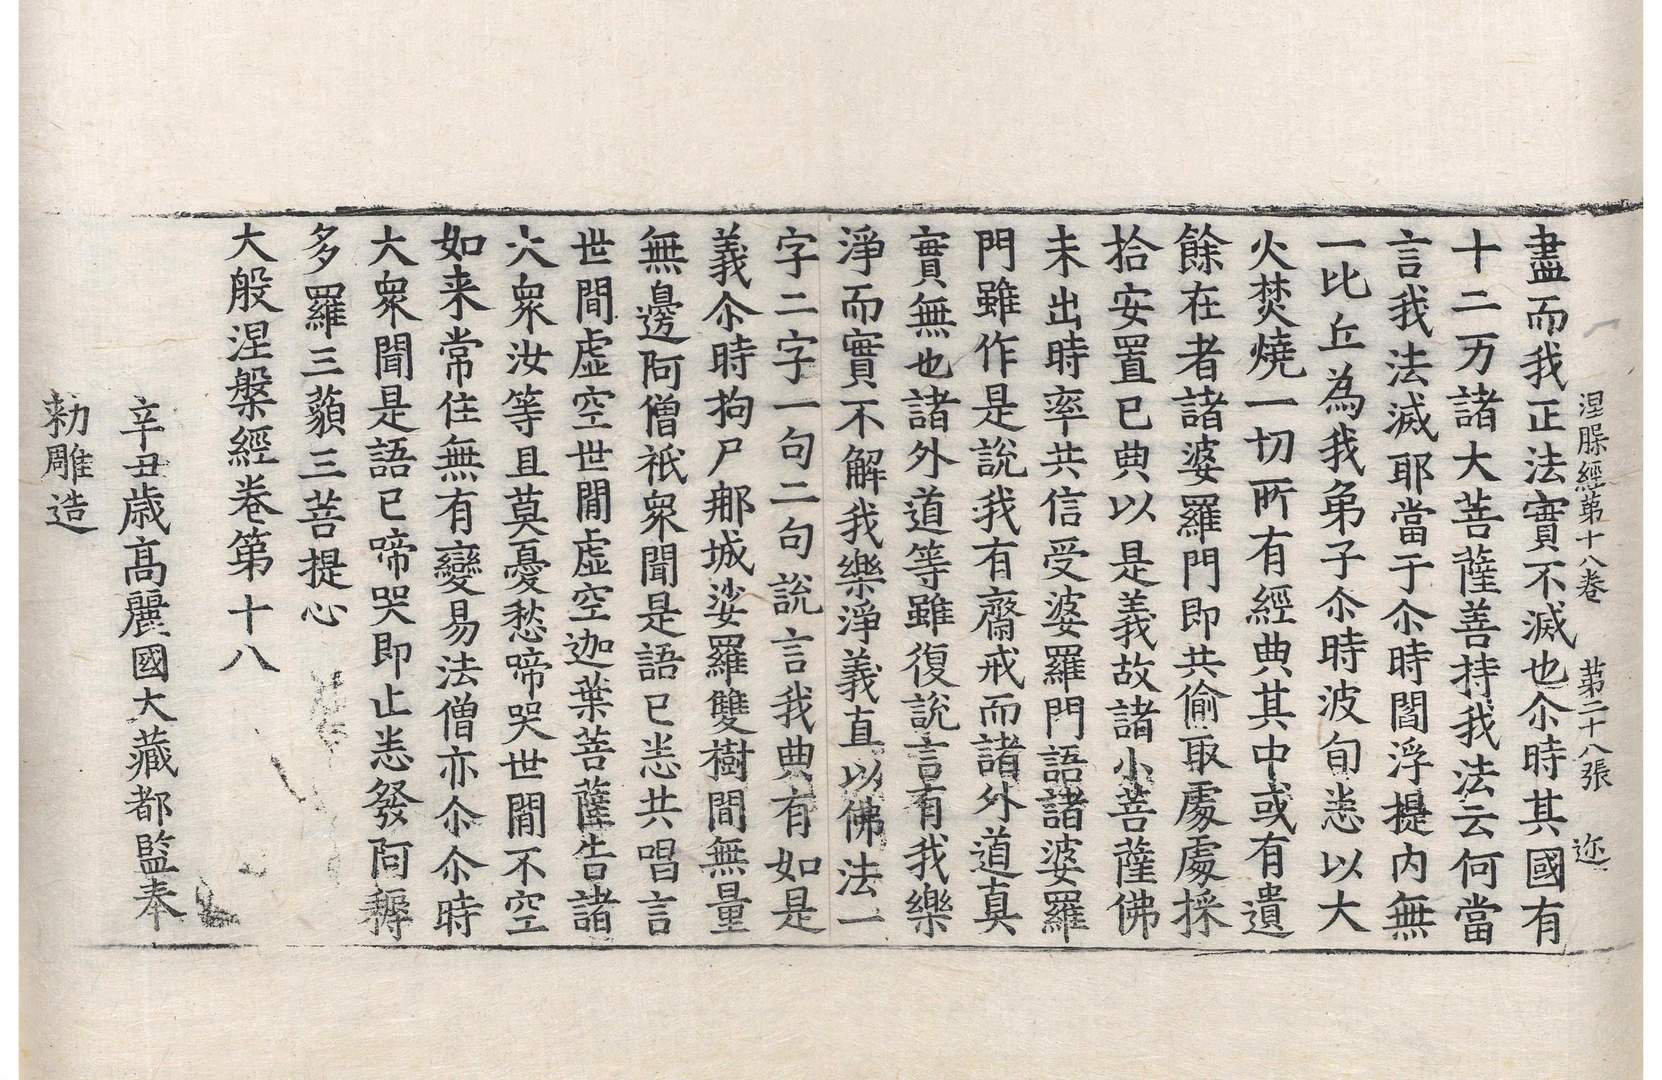 涅槃經第十八卷 第二十八張 迩
盡而我正法實不滅也尒時其國有
十二万諸大菩薩善持我法云何當
言我法滅耶當于尒時閻浮提內無
一比丘為我弟子尒時波旬悉以大
火焚燒一切所有經典其中或有遺
餘在者諸婆羅門即共偷取處處採
拾安置已典以是義故諸小菩薩佛
未出時率共信受婆羅門語諸婆羅
門雖作是說我有齋戒而諸外道真
實無也諸外道等雖復說言有我樂
淨而實不解我樂淨義直以佛法一
字二字一句二句說言我典有如是
義尒時拘尸那城娑羅雙樹間無量
無邊阿僧祇衆聞是語已悉共唱言
世間虛空世間虛空迦葉菩薩告諸
大衆汝等且莫憂愁啼哭世間不空
如来常住無有變易法僧亦尒尒時
大衆聞是語已啼哭即止悉發阿耨
多羅三藐三菩提心
大般涅槃經卷第十八
辛丑歲高麗國大藏都監奉
勅雕造